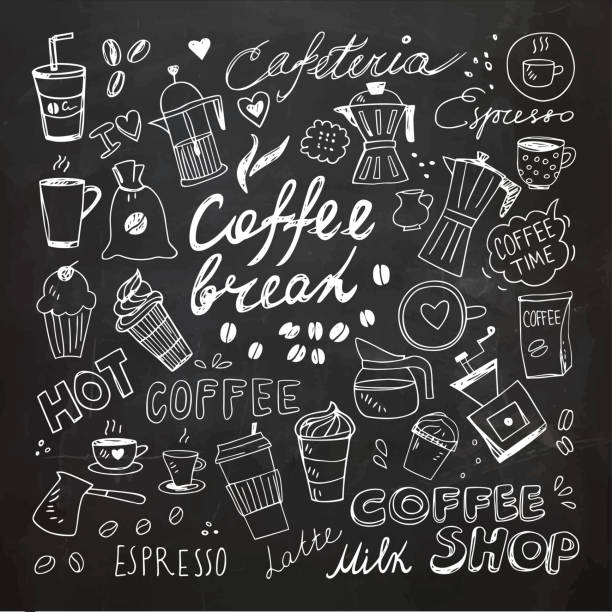 Cafeteria
Espresso
I
Coffee
break
COFFEE
TIME
COFFEE
HOT
COFFEE
COFFEE
SHOP
ESPRESSO
Latte
Milk